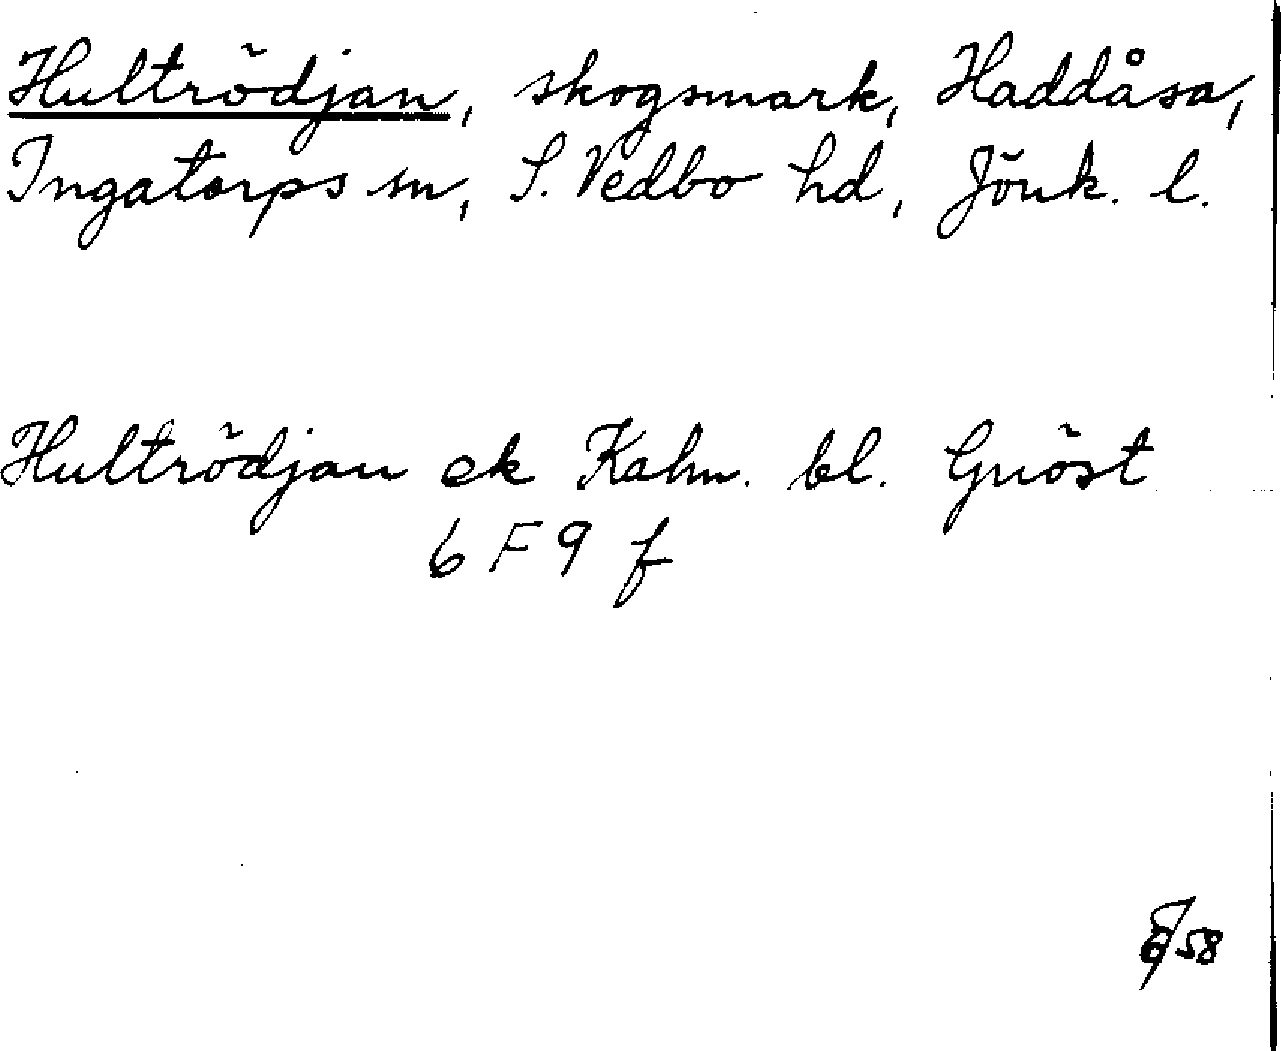 Hultrödjan, skogsmark, Haddåsa,
Ingatorps sn, S. Vedbo hd, Jönk. l.
Hultrödjan ek Kahn. bl. Gnöst
6 F 9 f
58